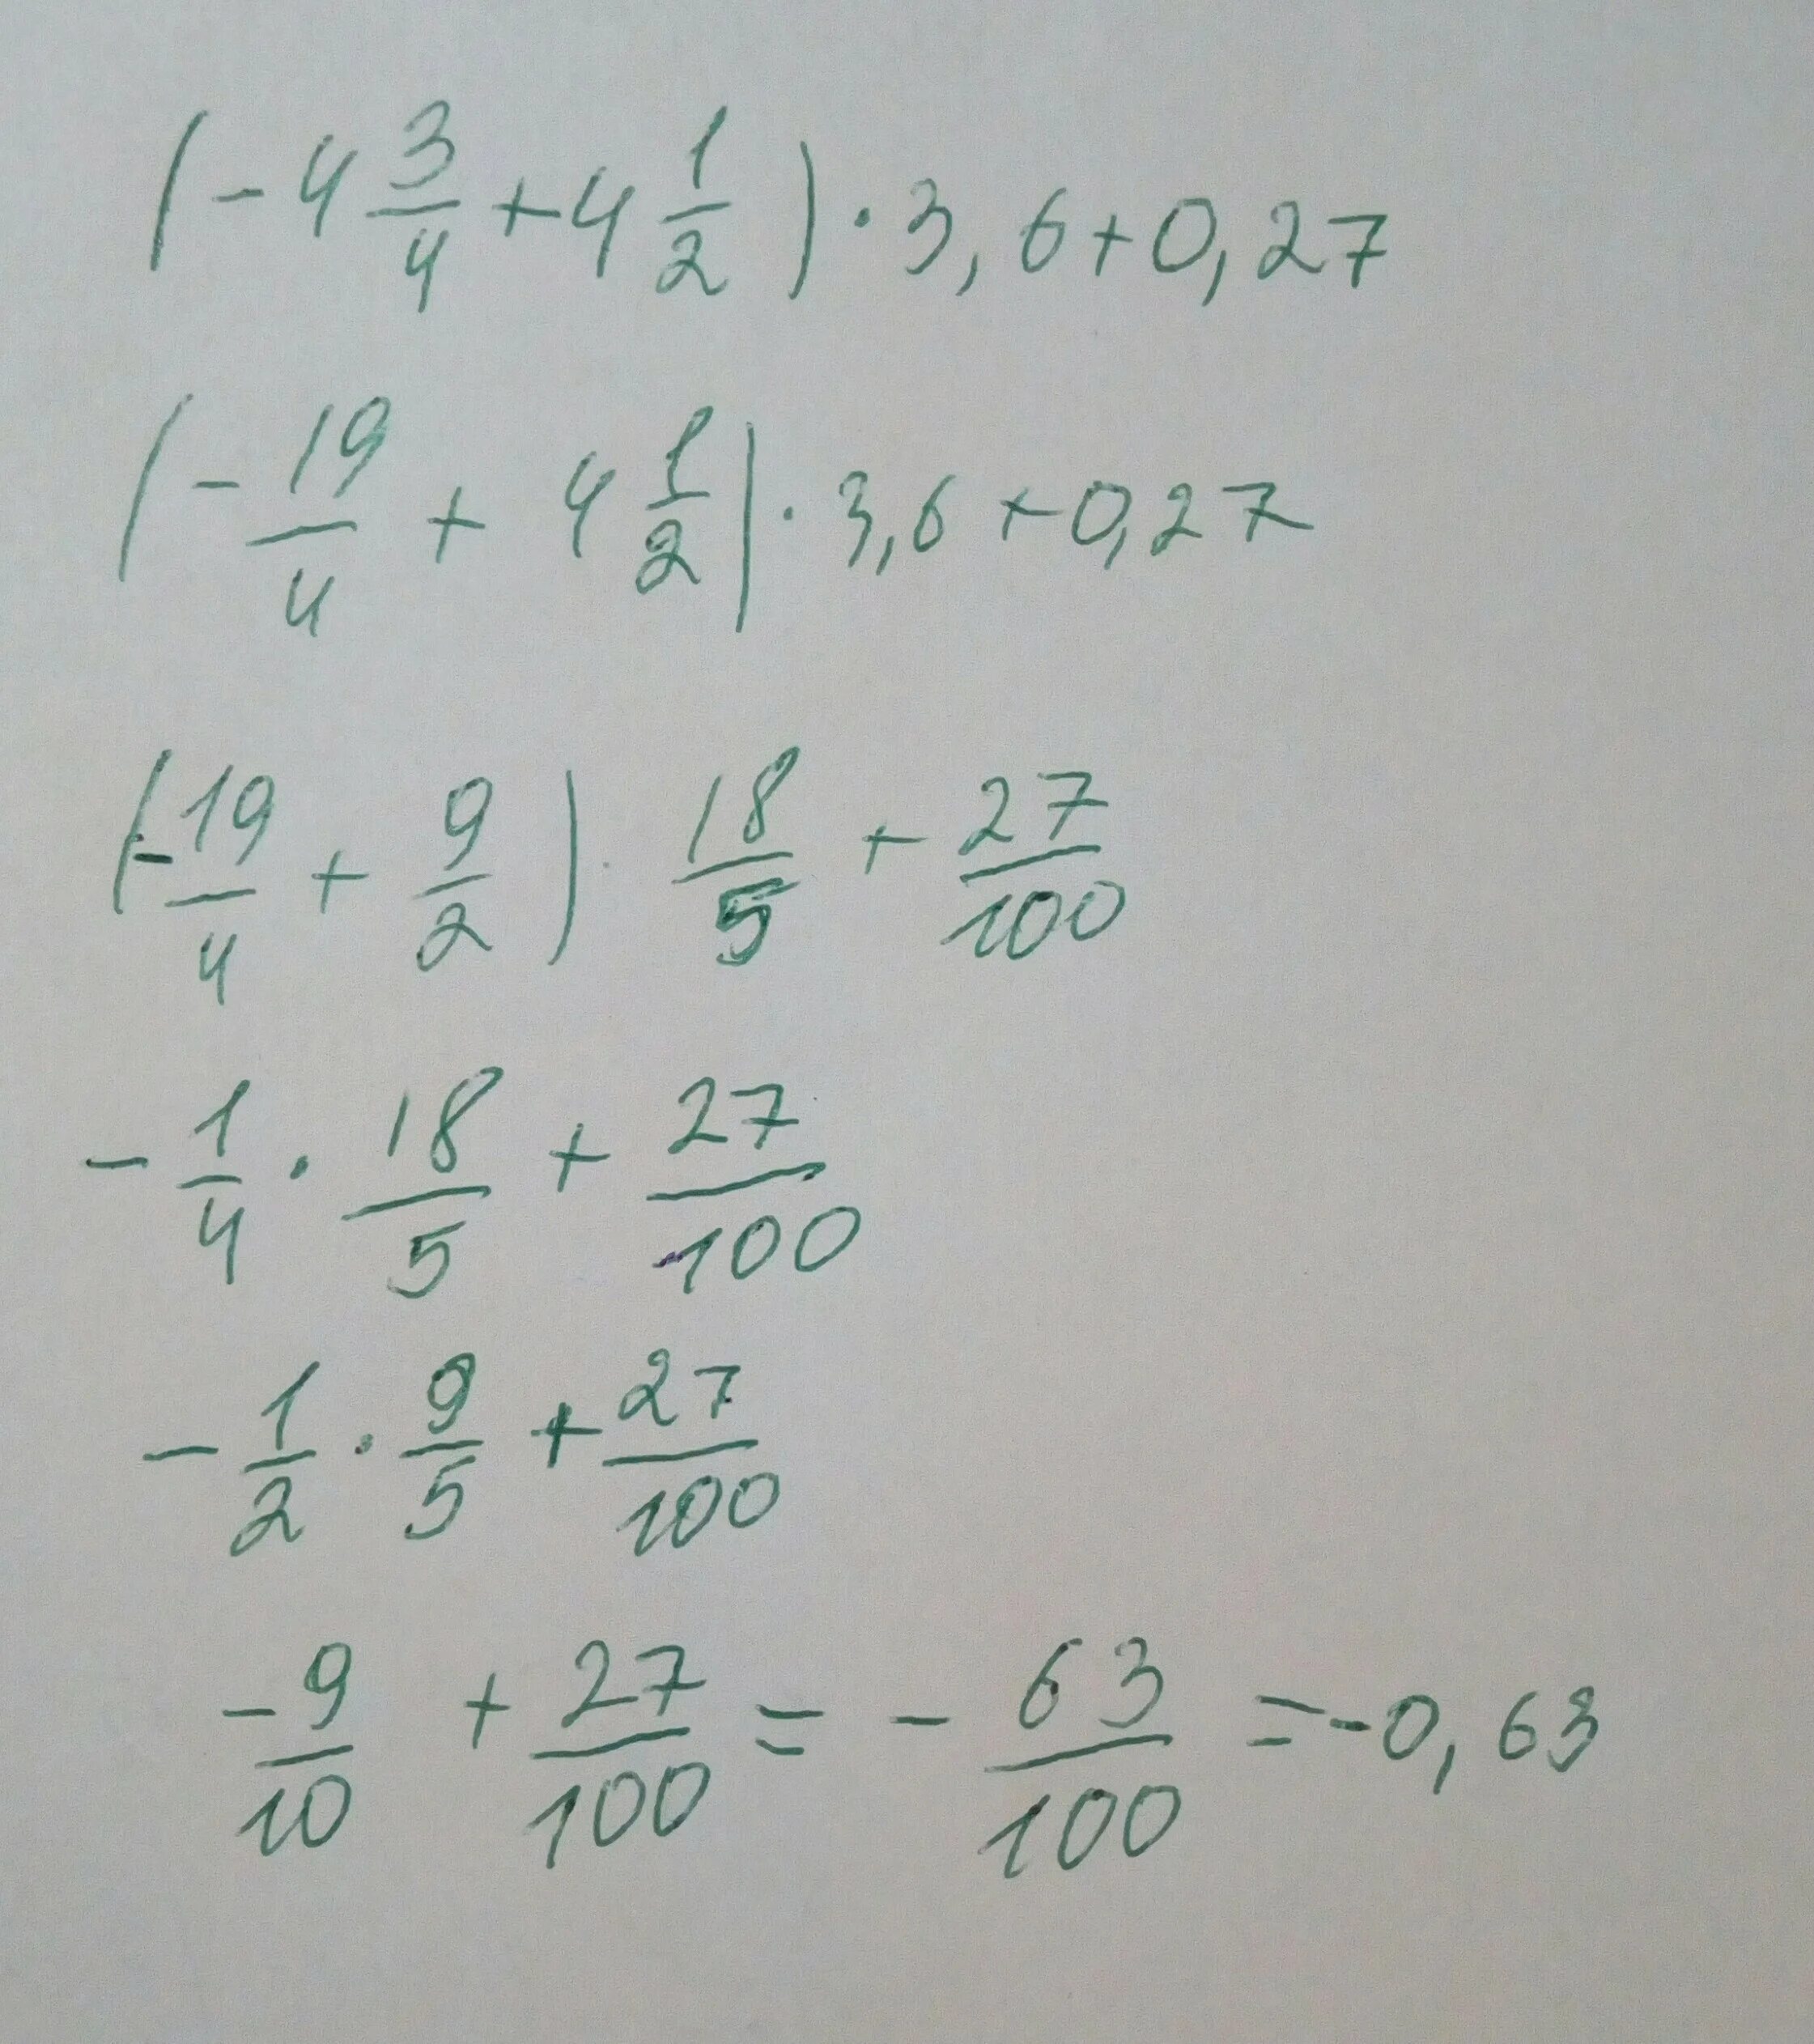 (-4 3/4 + 4 1/2) · 3,6 + 0,27
(- 19/4 + 4 1/2) · 3,6 + 0,27
(- 19/4 + 9/2) · 18/5 + 27/100
- 1/4 · 18/5 + 27/100
- 1/2 · 9/5 + 27/100
-9/10 + 27/100 = - 63/100 = -0,63